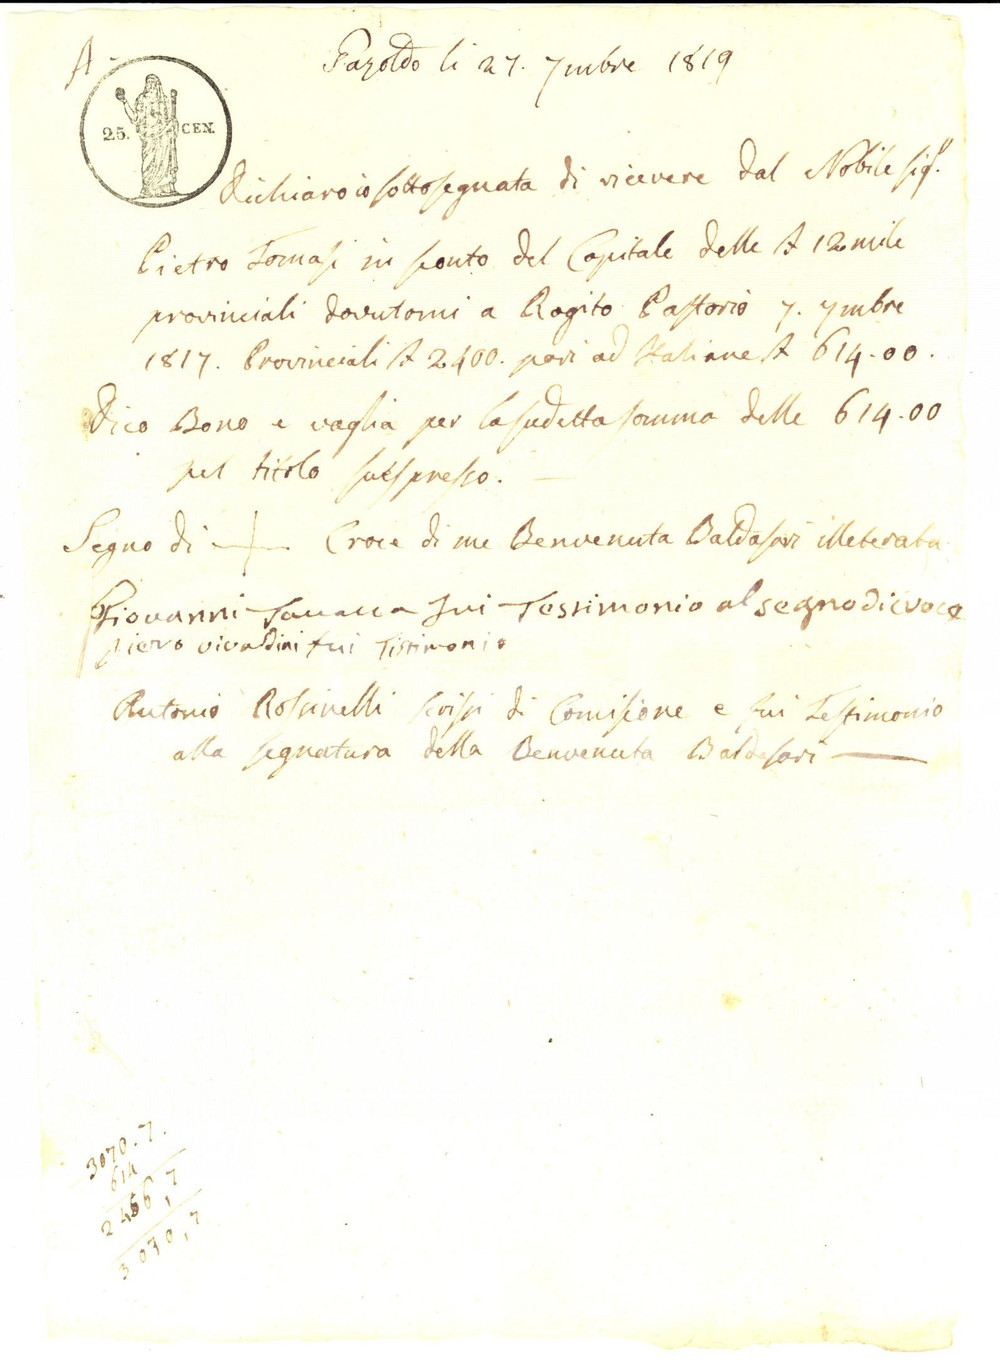 A
Gazoldo li 27. 7mbre 1819
25. CEN.
Dichiaro io sottosegnata di ricevere dal Nobile Sig.r
Pietro Tomasi in sconto del Capitale delle £ 12 mile
provinciali dovutomi a Rogito Pastorio 7. 7mbre
1817. Provinciali £ 2400. pari ad Italiane £ 614.00.
Dico Bono e vaglia per la sudetta somma delle 614.00
pel titolo suespresso.
Segno di + Croce di me Benvenuta Baldasari illeterata
Giovanni fui Testimonio al segno di croce
piero vivaldini fui Tistimonio
Antonio Rossinelli scrissi di Comisione e fui Testimonio
alla segnatura della Benvenuta Baldasari
3070.7.
614
2456,7
3070,7